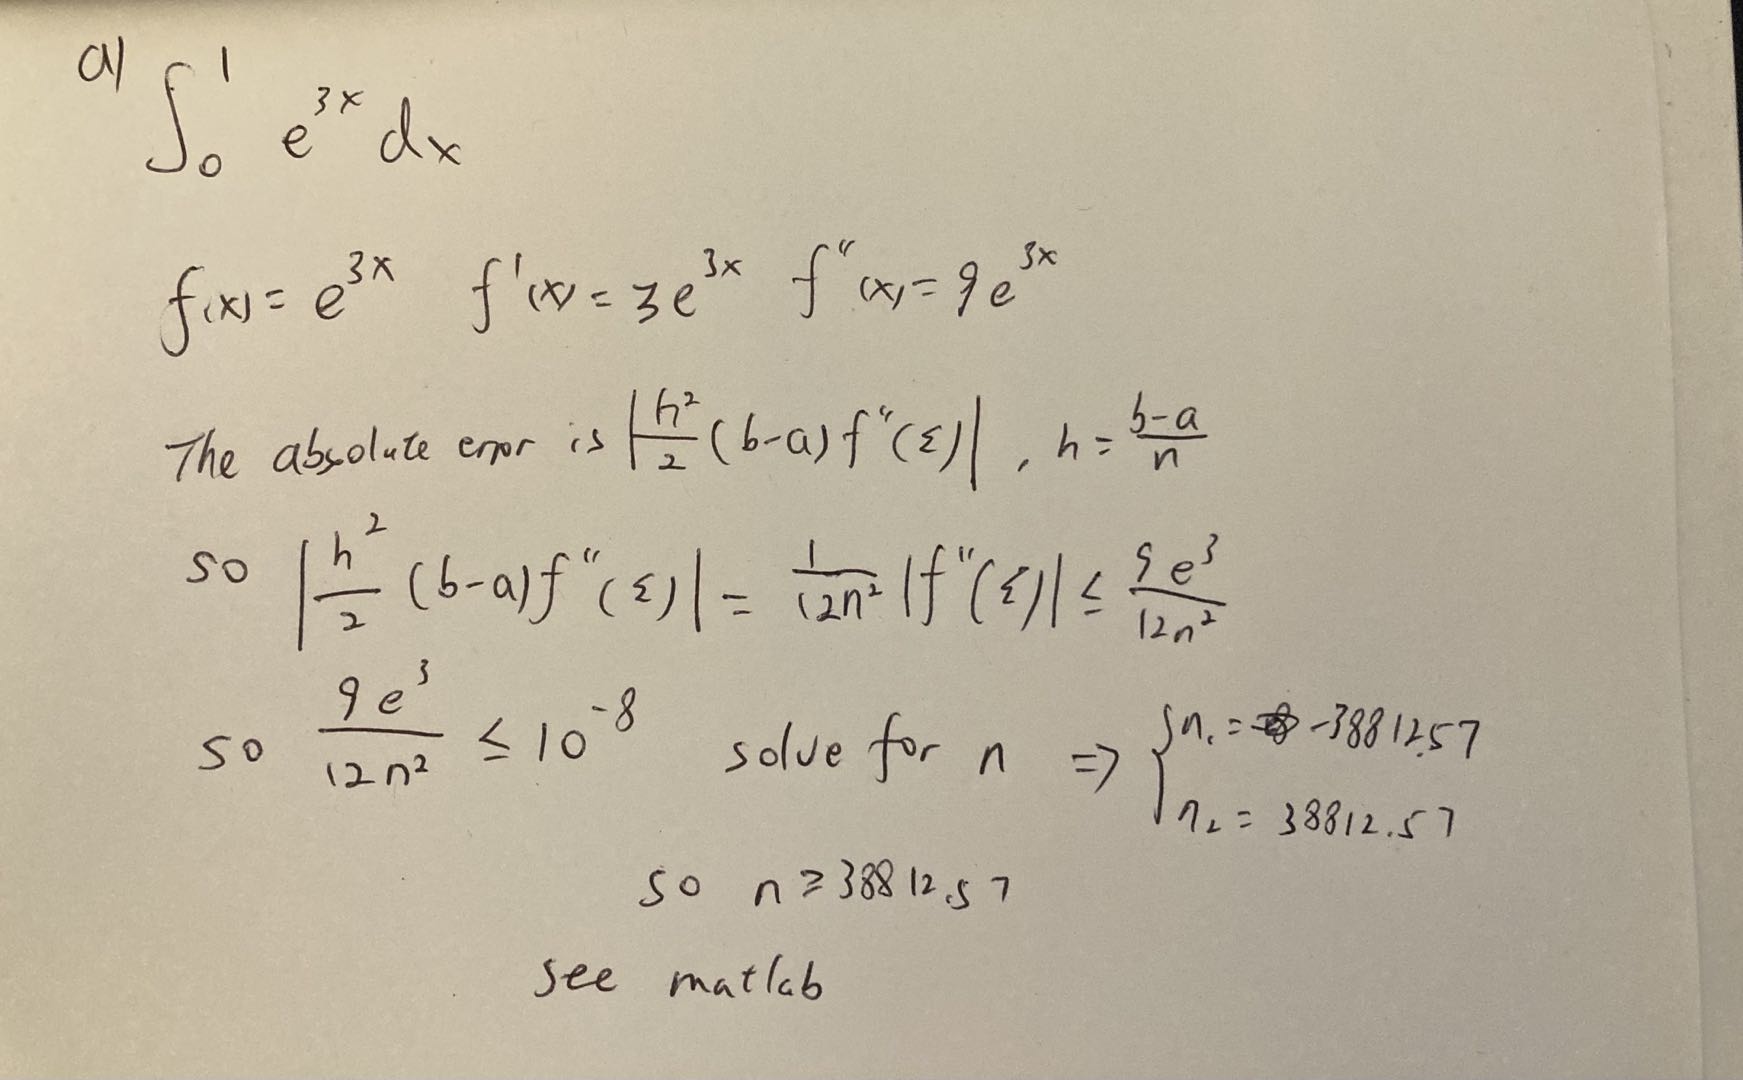 a) ∫₀¹ e^{3x} dx
f(x) = e^{3x} f'(x) = 3e^{3x} f"(x) = 9e^{3x}
The absolute error is |h²/2 (b-a) f"(ξ)|, h = (b-a)/n
so |h²/2 (b-a) f"(ξ)| = 1/(12n²) |f"(ξ)| ≤ 9e³/(12n²)
so 9e³/(12n²) ≤ 10⁻⁸ solve for n ⇒ { n₁ = -38812.57
n₂ = 38812.57
so n ≥ 38812.57
see matlab